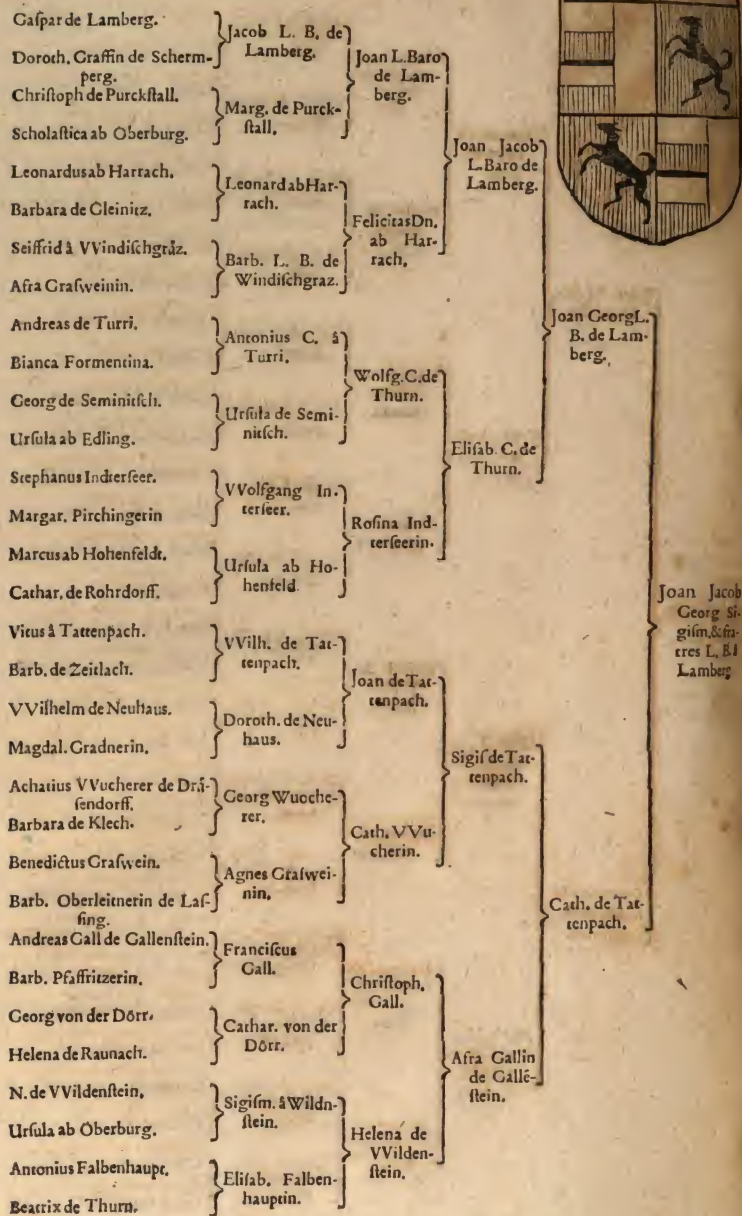 Gaſpar de Lamberg.
Doroth. Graffin de Scherm-
perg.
Chriſtoph de Purckſtall.
Scholaſtica ab Oberburg.
Leonardus ab Harrach.
Barbara de Gleinitz.
Seiffrid â VVindiſchgråz.
Afra Graſweinin.
Andreas de Turri.
Bianca Formentina.
Georg de Seminitſch.
Urſula ab Edling.
Stephanus Indterſeer.
Margar. Pirchingerin
Marcus ab Hohenfeldt.
Cathar. de Rohrdorff.
Vitus â Tattenpach.
Barb. de Zeitlach.
VVilhelm de Neuhaus.
Magdal. Gradnerin.
Achatius VVucherer de Drå-
ſendorff.
Barbara de Klech.
Benedictus Graſwein.
Barb. Oberleitnerin de Laſ-
ſing.
Andreas Gall de Gallenſtein.
Barb. Pfaffritzerin.
Georg von der Dörr.
Helena de Raunach.
N. de VVildenſtein.
Urſula ab Oberburg.
Antonius Falbenhaupt.
Beatrix de Thurn.
Jacob L. B. de
Lamberg.
Marg. de Purck-
ſtall.
Leonard ab Har-
rach.
Barb. L. B. de
Windiſchgraz.
Antonius C. â
Turri.
Urſula de Semi-
nitſch.
VVolfgang In-
terſeer.
Urſula ab Ho-
henfeld.
VVilh. de Tat-
tenpach.
Doroth. de Neu-
haus.
Georg Wuoche-
rer.
Agnes Graſwei-
nin.
Franciſcus
Gall.
Cathar. von der
Dörr.
Sigiſm. â Wildn-
ſtein.
Eliſab. Falben-
hauptin.
Joan L. Baro
de Lam-
berg.
Felicitas Dn.
ab Har-
rach.
Wolfg. C. de
Thurn.
Roſina Ind-
terſeerin.
Joan de Tat-
tenpach.
Cath. VVu-
cherin.
Chriſtoph.
Gall.
Helena de
VVilden-
ſtein.
Joan Jacob
L. Baro de
Lamberg.
Eliſab. C. de
Thurn.
Sigiſ de Tat-
tenpach.
Afra Gallin
de Gallē-
ſtein.
Joan Georg L.
B. de Lam-
berg.
Cath. de Tat-
tenpach.
Joan Jacob
Georg Si-
giſm. & fra-
tres L. B.
Lamberg